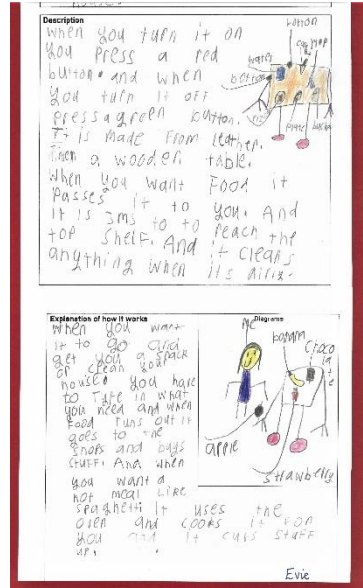 Description
when you turn it on
you press a red
button. and when
you turn it off
press a green button.
It is made from leather.
Then a wooden table.
When you want Food it
Passes it to you. And
It is 3ms to to reach the
top shelf. And it cleans
anything when its
button
mop
water
button
plate
Explanation of how it works
when you want
it to go and
get you a snack
or clean your
house you have
to Type in what
you need and when
Food runs out it
goes to the
shops and buys
stuff. And when
you want a
hot meal like
spaghetti it uses the
oven and cooks it for
you and it cuts stuff
up.
Diagrams
me
banana
choco
apple
strawberry
Evie